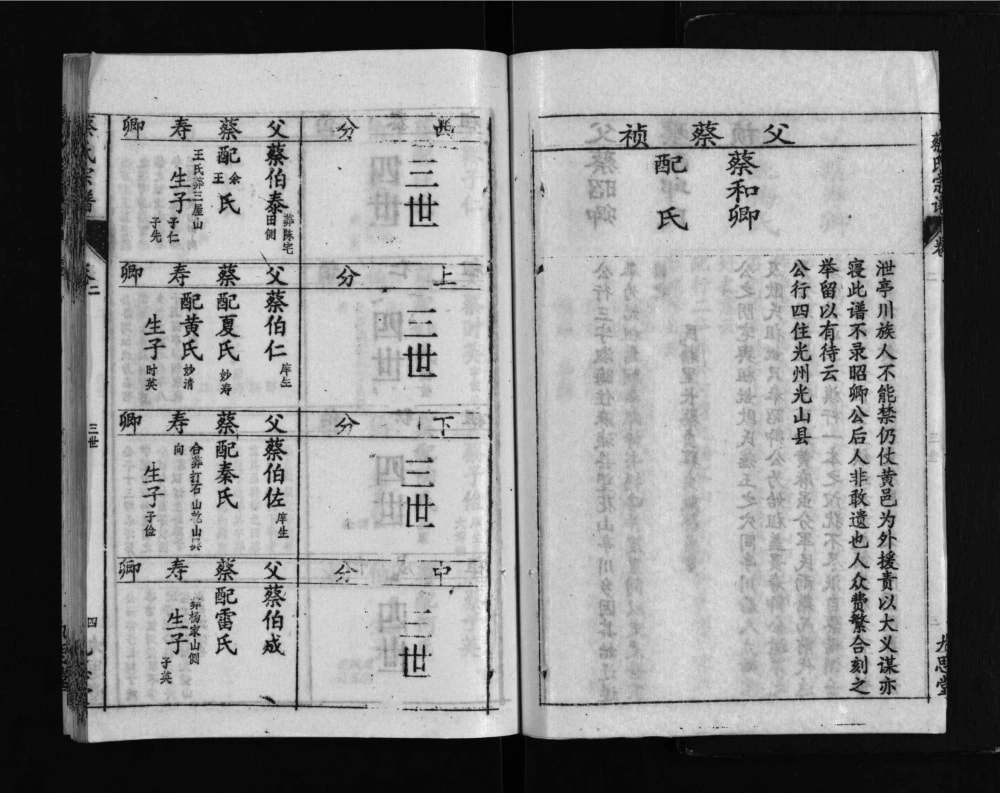 父蔡祯
蔡和卿
配氏
泄亭川族人不能禁仍仗黄邑为外援责以大义谋亦
寝此谱不录昭卿公后人非敢遗也人众费繁合刻之
举留以有待云
公行四住光州光山县
三世
西分
父蔡寿卿
蔡伯泰 葬陈宅田侧
配余王氏
王氏葬三屋山向
生子 子仁 子先
三世
上分
父蔡寿卿
蔡伯仁 庠生
配夏氏 妙寿
配黄氏 妙清
生子 时英
三世
下分
父蔡寿卿
蔡伯佐 庠生
配秦氏
合葬打石山乾山巽向
生子 子俭
三世
中分
父蔡寿卿
蔡伯成
配雷氏
葬杨家山侧
生子 子英
蔡氏宗谱
卷二
三世
四
九思堂